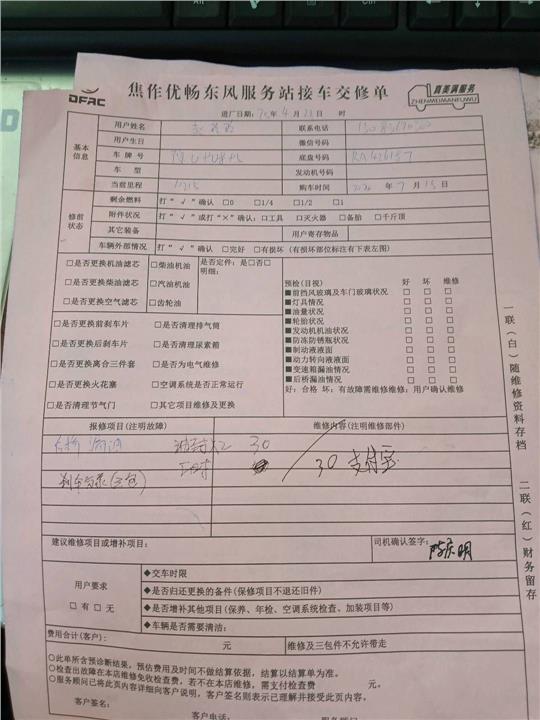 DFAC
焦作优畅东风服务站接车交修单
真美满服务
ZHENMEIMANFUWU
进厂日期: 年 4 月 23 日 时
基本信息
用户姓名 联系电话
用户生日 微信号码
车牌号 底盘号码
车 型 发动机号码
当前里程 购车时间 年 7 月 15 日
修前状态
剩余燃料 打“√”确认 □0 □1/4 □1/2 □1
附件状况 打“√”或打“×”确认:□工具 □灭火器 □备胎 □千斤顶
其它装备 用户寄存物品
车辆外部情况 打“√”确认 □完好 □有损坏 (有损坏部位标注有下表左图)
□是否更换机油滤芯 □柴油机油 是否定件: 是□否□
明细:
□是否更换柴油滤芯 □汽油机油
□是否更换空气滤芯 □齿轮油
□是否更换前刹车片 □是否清理排气筒
□是否更换后刹车片 □是否清理尿素箱
□是否更换离合三件套 □是否为电气维修
□是否更换火花塞 □空调系统是否正常运行
□是否清理节气门 □其它项目维修及更换
预检(目视) 好 坏 维修
■前挡风玻璃及车门玻璃状况 □ □ □
■灯具情况 □ □ □
■油量状况 □ □ □
■轮胎状况 □ □ □
■发动机机油状况 □ □ □
■防冻防锈瓶状况 □ □ □
■制动液液面 □ □ □
■动力转向液液面 □ □ □
■变速箱漏油情况 □ □ □
■后桥漏油情况 □ □ □
好:合格 坏:有故障需维修维修:用户确认维修
报修项目(注明故障) 维修内容(注明维修部件)
30
30 支付宝
建议维修项目或增补项目: 司机确认签字:
用户要求
□有 □无
◆交车时限
◆是否归还更换的备件(保修项目不退还旧件)
◆是否增补其他项目(保养、年检、空调系统检查、加装项目等)
◆车辆是否需要清洁:
费用合计(客户): 元 维修及三包件不允许带走
○此单所含预诊断结果,预估费用及时间不做结算依据,结算以结算单为准。
○检查出故障在本店维修免收检查费,若不在本店维修,需支付检查费 元。
○服务顾问已将此页内容详细向客户说明,客户签名则表示已理解并接受此页内容。
客户签名: 客户电话:
一联(白)随维修资料存档
二联(红)财务留存